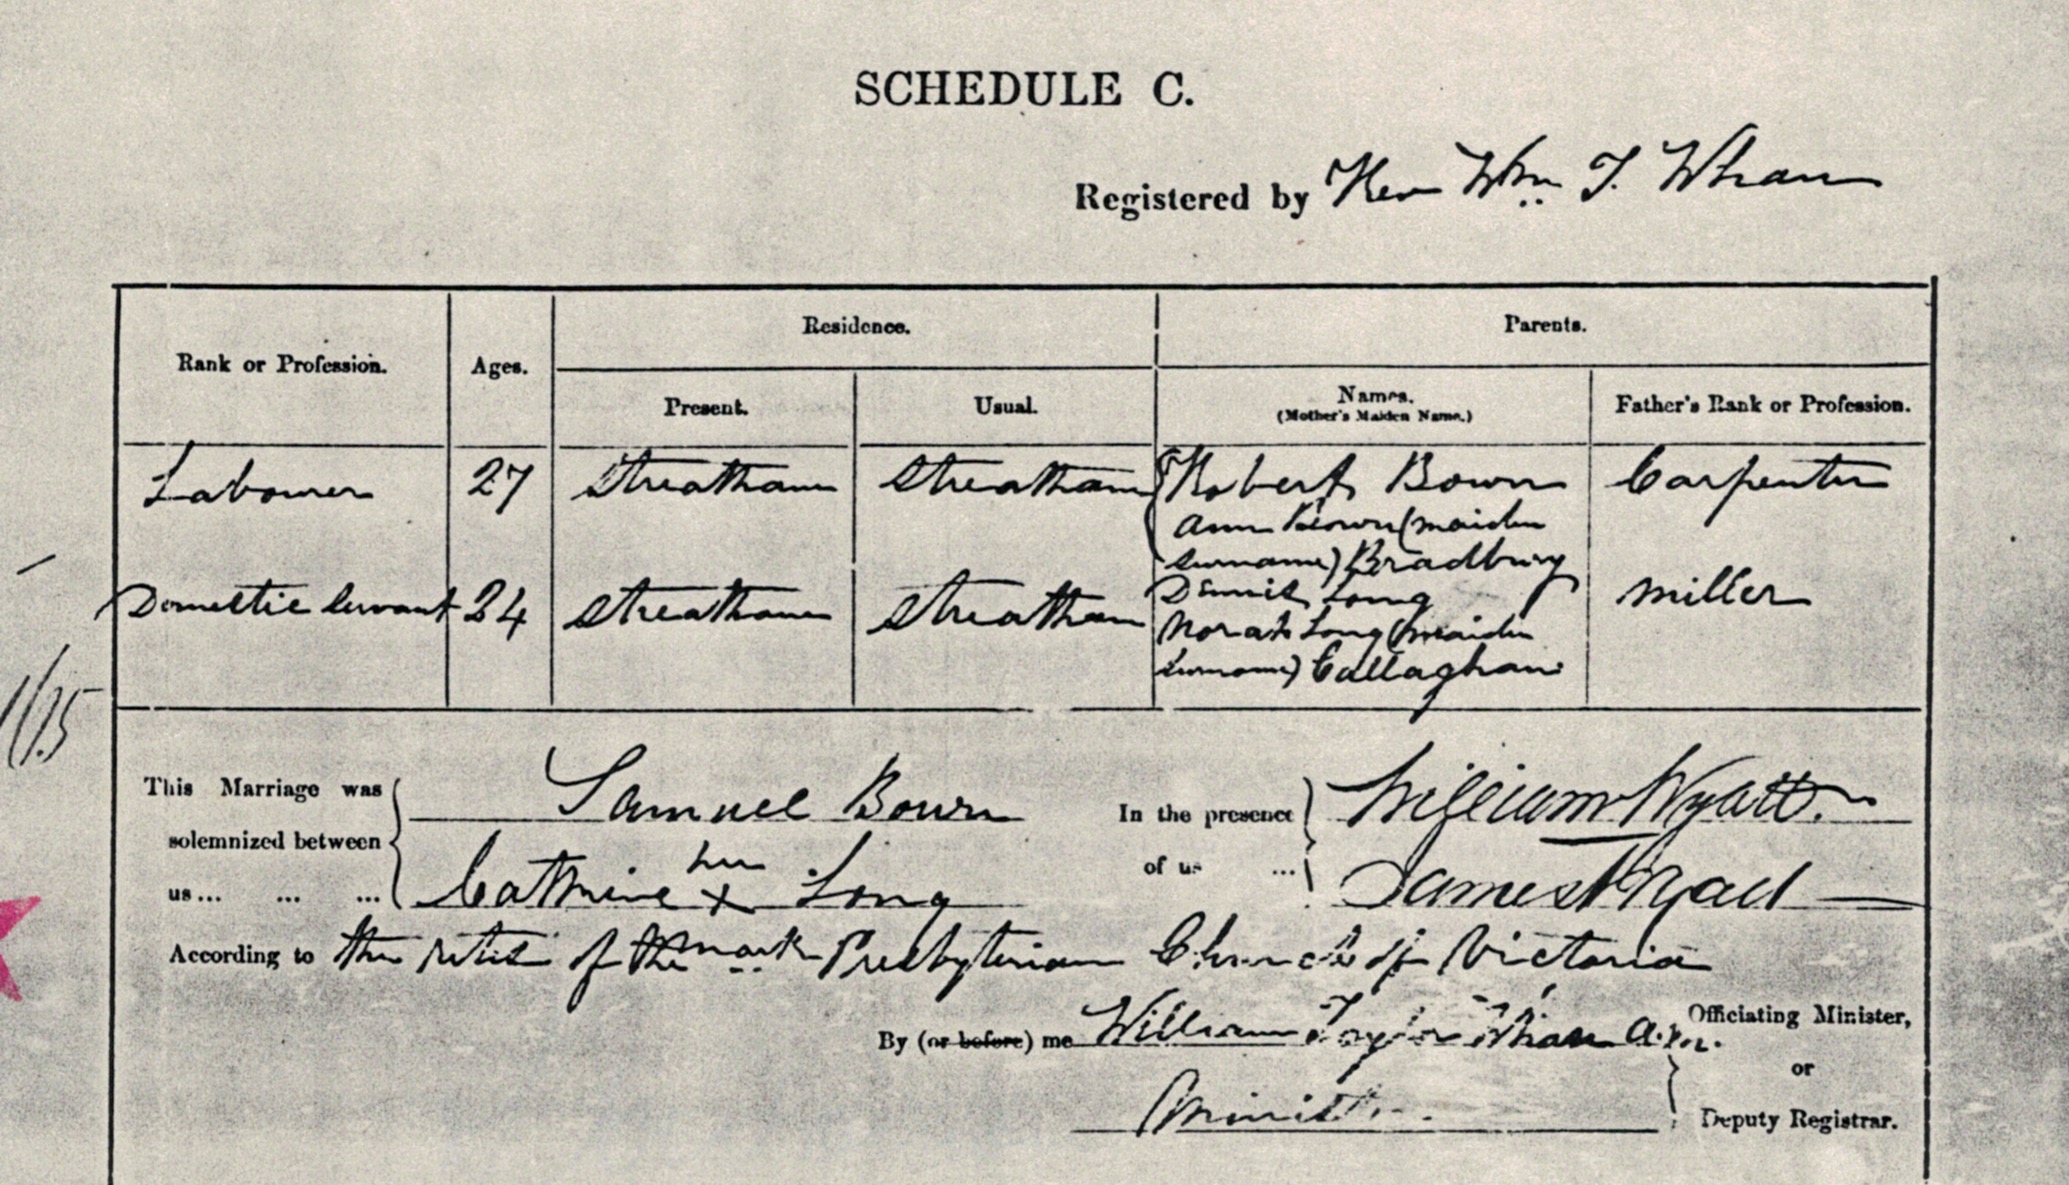 SCHEDULE C.
Registered by Rev Wm. T. Whan
Residence.
Parents.
Rank or Profession.
Ages.
Present.
Usual.
Names.
(Mother's Maiden Name.)
Father's Rank or Profession.
Labourer 27 Streatham Streatham Robert Bown Carpenter
Ann Bown (maiden
surname) Bradbury
Domestic Servant 24 Streatham Streatham Dennis Long miller
Norah Long (maiden
surname) Callaghan
This Marriage was
solemnized between
us... ... ...
Samuel Bown
her
Cathrine x Long
mark
In the presence
of us ...
William Wyatt.
James
According to the rites of the Presbyterian Church of Victoria
By (or before) me William Taylor Whan A.M.
Minister
Officiating Minister,
or
Deputy Registrar.